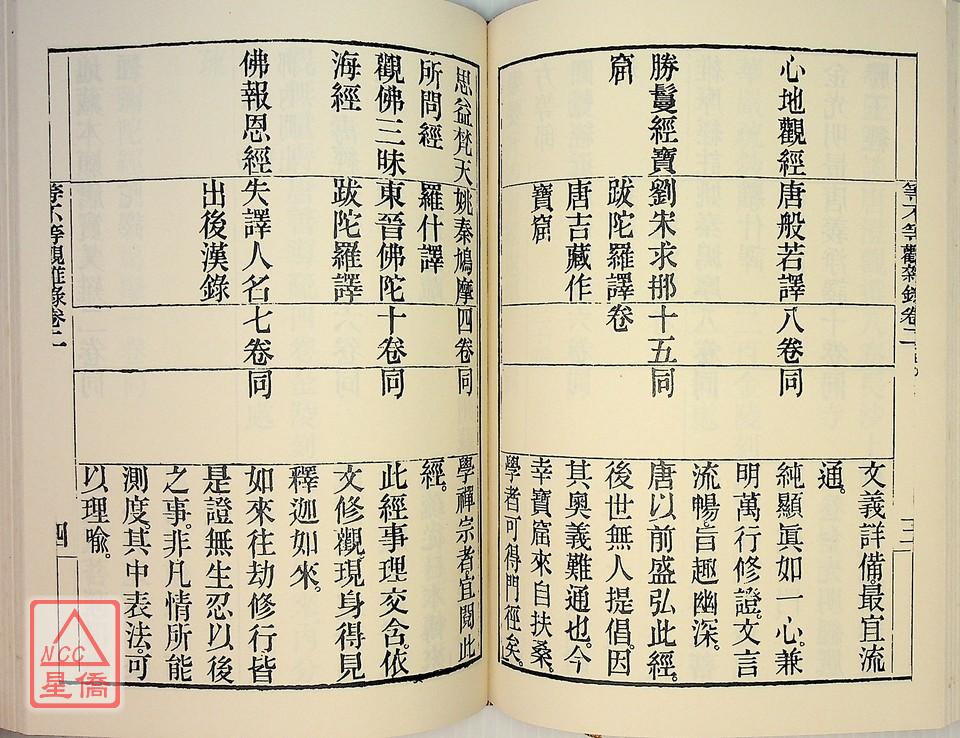 文義詳備。最宜流
通。
心地觀經
唐般若譯
八卷
同
純顯眞如一心。兼
明萬行修證。文言
流暢。旨趣幽深。
勝鬘經寶
窟
劉宋求那
跋陀羅譯
唐吉藏作
寶窟
十五
卷
同
唐以前盛弘此經。
後世無人提倡。因
其奧義難通也。今
幸寶窟來自扶桑。
學者可得門徑矣。
等不等觀雜錄卷二
三
思益梵天
所問經
姚秦鳩摩
羅什譯
四卷
同
學禪宗者宜閱此
經。
觀佛三昧
海經
東晉佛陀
跋陀羅譯
十卷
同
此經事理交含。依
文修觀現身得見
釋迦如來。
佛報恩經
失譯人名
出後漢錄
七卷
同
如來往劫修行皆
是證無生忍以後
之事。非凡情所能
測度。其中表法。可
以理喩。
等不等觀雜錄卷二
四
NCC
星僑